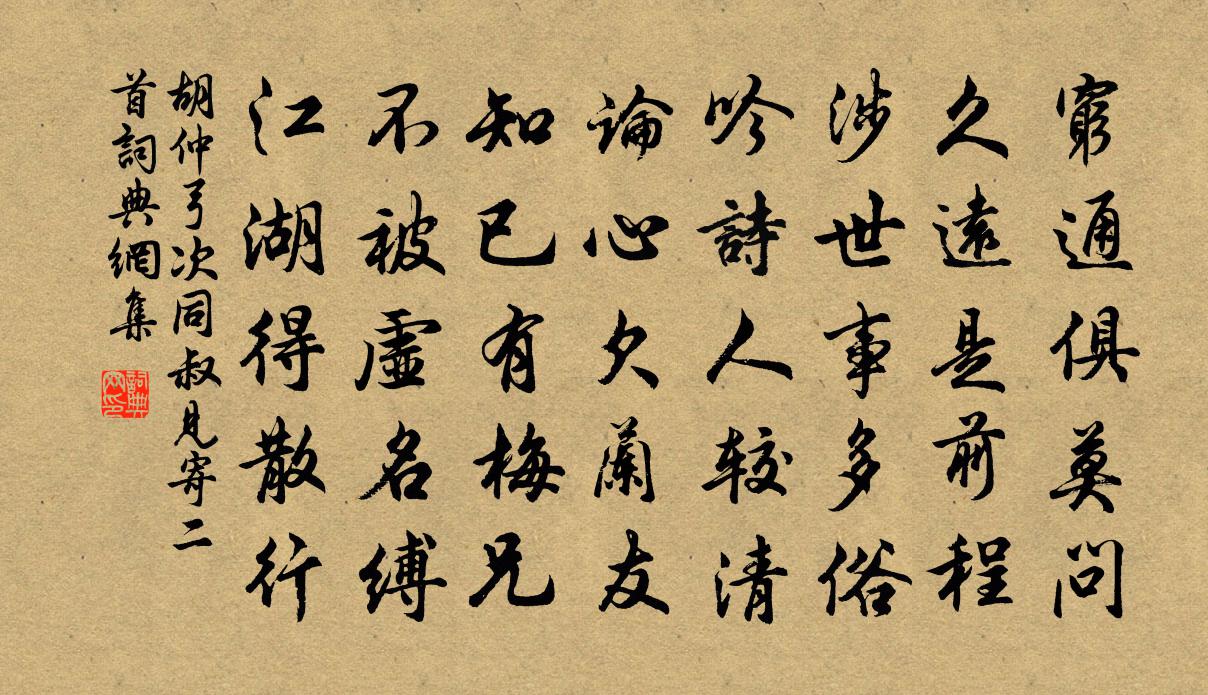 窮通俱莫問
久遠是前程
涉世事多俗
吟詩人較清
論心欠蘭友
知已有梅兄
不被虛名縛
江湖得散行
胡仲弓次同叔見寄二
首詞典網集
詞典
網印